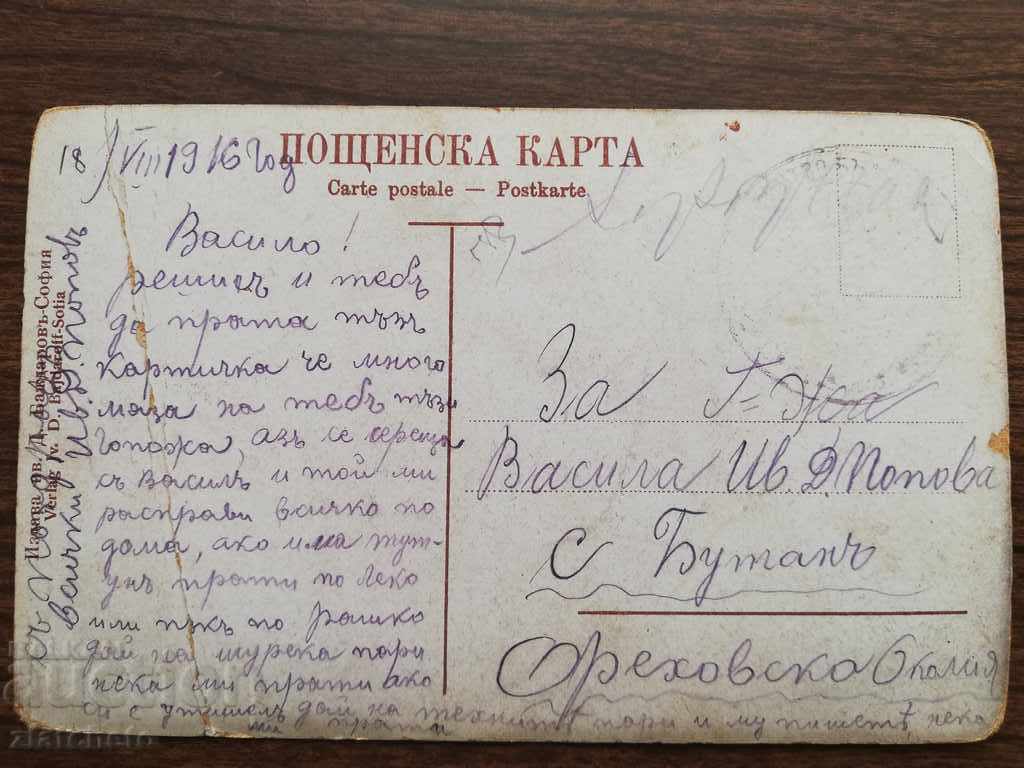 18/VIII 1916 год
ПОЩЕНСКА КАРТА
Carte postale — Postkarte
Васило!
решихъ и тебѣ
да пратя тъзи
картичка че много
маза на тебѣ тъзи
азъ се
съ Василъ и той ми
расправи всичко по
дома, ако има тут-
унъ прати по Леко
или пъкъ по Рашко
дай на шурека пари
нека ми прати ако
си с дай на техните пари и му пишетѣ нека
ми прати
всички Ив. Д. Поповъ
Издава Ив. Д. Бајдаровъ-София
Verlag Iv. D. Bajdaroff-Sofia
За Г-жа
Васила Ив. Д. Попова
с Бутанъ
Ореховска Околия
zlatcheto